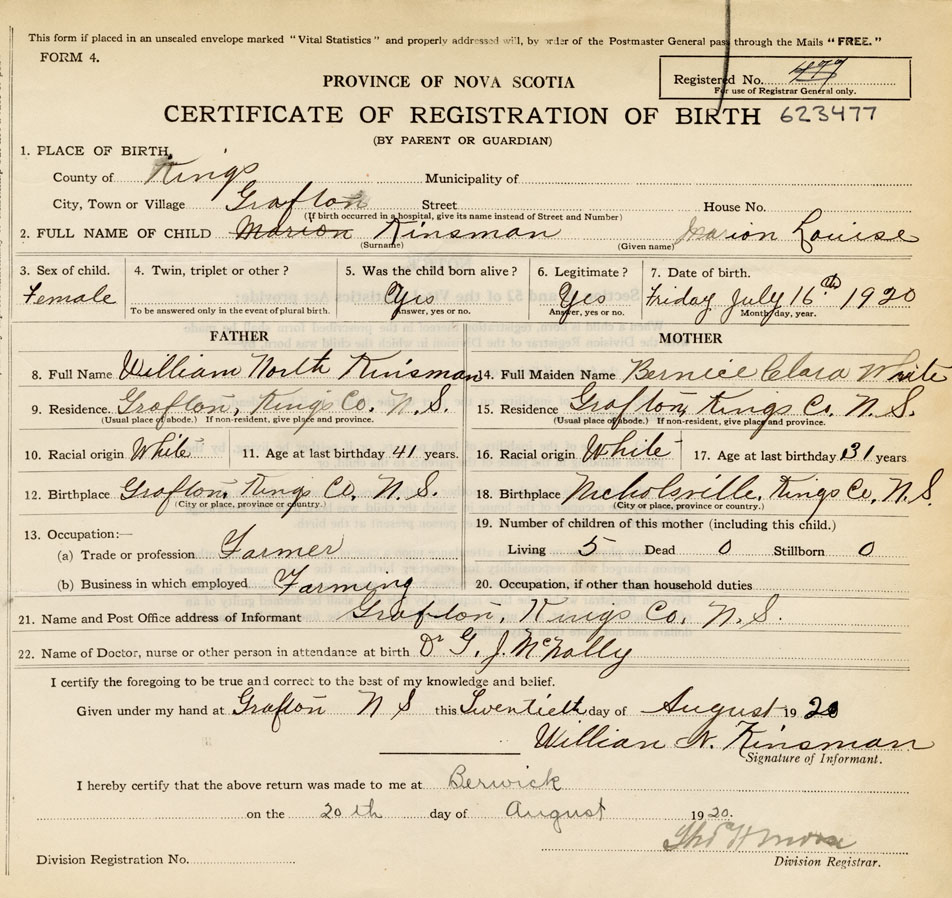 This form if placed in an unsealed envelope marked "Vital Statistics" and properly addressed will, by order of the Postmaster General pass through the Mails "FREE."
FORM 4.
PROVINCE OF NOVA SCOTIA
Registered No. 477
For use of Registrar General only.
CERTIFICATE OF REGISTRATION OF BIRTH 623477
(BY PARENT OR GUARDIAN)
1. PLACE OF BIRTH,
County of Kings Municipality of
City, Town or Village Grafton Street House No.
(If birth occurred in a hospital, give its name instead of Street and Number)
2. FULL NAME OF CHILD Marion Kinsman Marion Louise
(Surname) (Given name)
3. Sex of child. 4. Twin, triplet or other? 5. Was the child born alive? 6. Legitimate? 7. Date of birth.
Female Yes Yes Friday July 16th 1920
To be answered only in the event of plural birth. Answer, yes or no. Answer, yes or no. Month, day, year.
FATHER MOTHER
8. Full Name William North Kinsman 14. Full Maiden Name Bernice Clara White
9. Residence. Grafton, Kings Co. N.S. 15. Residence Grafton Kings Co. N.S.
(Usual place of abode.) If non-resident, give place and province. (Usual place of abode.) If non-resident, give place and province.
10. Racial origin White 11. Age at last birthday 41 years. 16. Racial origin White 17. Age at last birthday 31 years
12. Birthplace Grafton, Kings Co. N.S. 18. Birthplace Nicholsville, Kings Co. N.S.
(City or place, province or country.) (City or place, province or country.)
13. Occupation:— 19. Number of children of this mother (including this child.)
(a) Trade or profession Farmer Living 5 Dead 0 Stillborn 0
(b) Business in which employed Farming 20. Occupation, if other than household duties
21. Name and Post Office address of Informant Grafton, Kings Co. N.S.
22. Name of Doctor, nurse or other person in attendance at birth Dr G. J. McNally
I certify the foregoing to be true and correct to the best of my knowledge and belief.
Given under my hand at Grafton N S this Twentieth day of August 1920
William N. Kinsman
Signature of Informant.
I hereby certify that the above return was made to me at Berwick
on the 20th day of August 1920.
Division Registration No. Division Registrar.